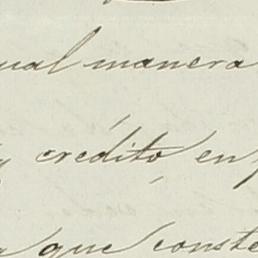 ual manera
y crédito, en
que conste